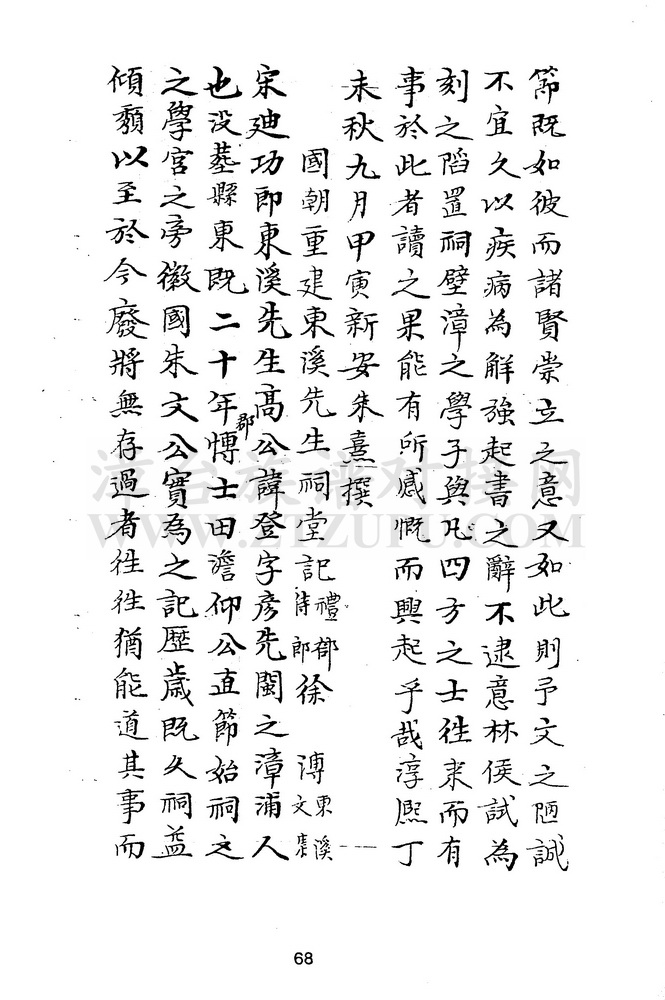 節既如彼而諸賢崇立之意又如此則予文之陋誠
不宜久以疾病為解強起書之辭不逮意林侯試為
刻之陷置祠壁漳之學子與凡四方之士往来而有
事於此者讀之果能有所感慨而興起乎哉淳熈丁
未秋九月甲寅新安朱熹撰
國朝重建東溪先生祠堂記禮部侍郎徐溥東溪文集
宋廸功即東溪先生高公諱登字彥先閩之漳浦人
也没葬縣東既二十年郡博士田澹仰公直節始祠之
之學宮之旁徽國朱文公實為之記歷歲既久祠益
傾頹以至於今廢將無存過者往往猶能道其事而
漳台族譜对接网
WWW.ZTZUPU.COM
68